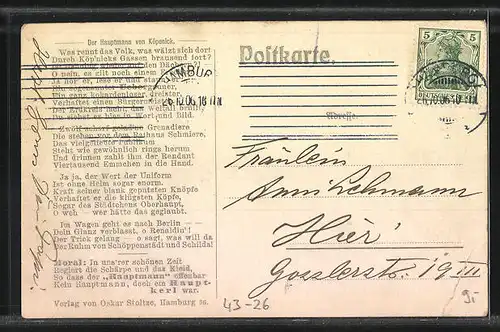 Der Hauptmann von Köpenick.
Was rennt das Volk, was wälzt sich dort
Durch Köp'nicks Gassen brausend fort?
O nein, es gilt noch einem
Ja nor er, lese er und staun er
Ein sogenannter
Verhaftet einen Bürgermeister
Der Erdkreis hallt, das Weltall brüllt,
Du siehst es hier in Wort und Bild.
Zwölf scharf geladne Grenadiere
Die stehen vor dem Rathaus Schmiere,
Das vielgetreue Publikum
Steht wie gewöhnlich rings herum
Und drinnen zahlt ihm der Rendant
Viertausend Emmchen in die Hand.
Ja ja, der Wert der Uniform
Ist ohne Helm sogar enorm.
Kraft seiner blank geputzten Knöpfe
Verhaftet er die klügsten Köpfe,
Sogar des Städtchens Oberhaupt,
O weh — wer hätte das geglaubt.
Im Wagen geht es nach Berlin —
Dein Glanz verblasst, o Renaldin!
Der Trick gelang — o sagt, was will da
Der Ruhm von Schöppenstädt und Schilda!
Moral: In uns'rer schönen Zeit
Regiert die Schärpe und das Kleid,
So dass der „Hauptmann" offenbar
Kein Hauptmann, doch ein Haupt-
kerl war.
Verlag von Oskar Stoltze, Hamburg 36.
Postkarte.
Adresse.
5 5
HAMBURG
26.10.06.
26.10.06.
Fräulein
Anni Lehmann
Hier
Gosslerstr. 19 III
43-26
9.-